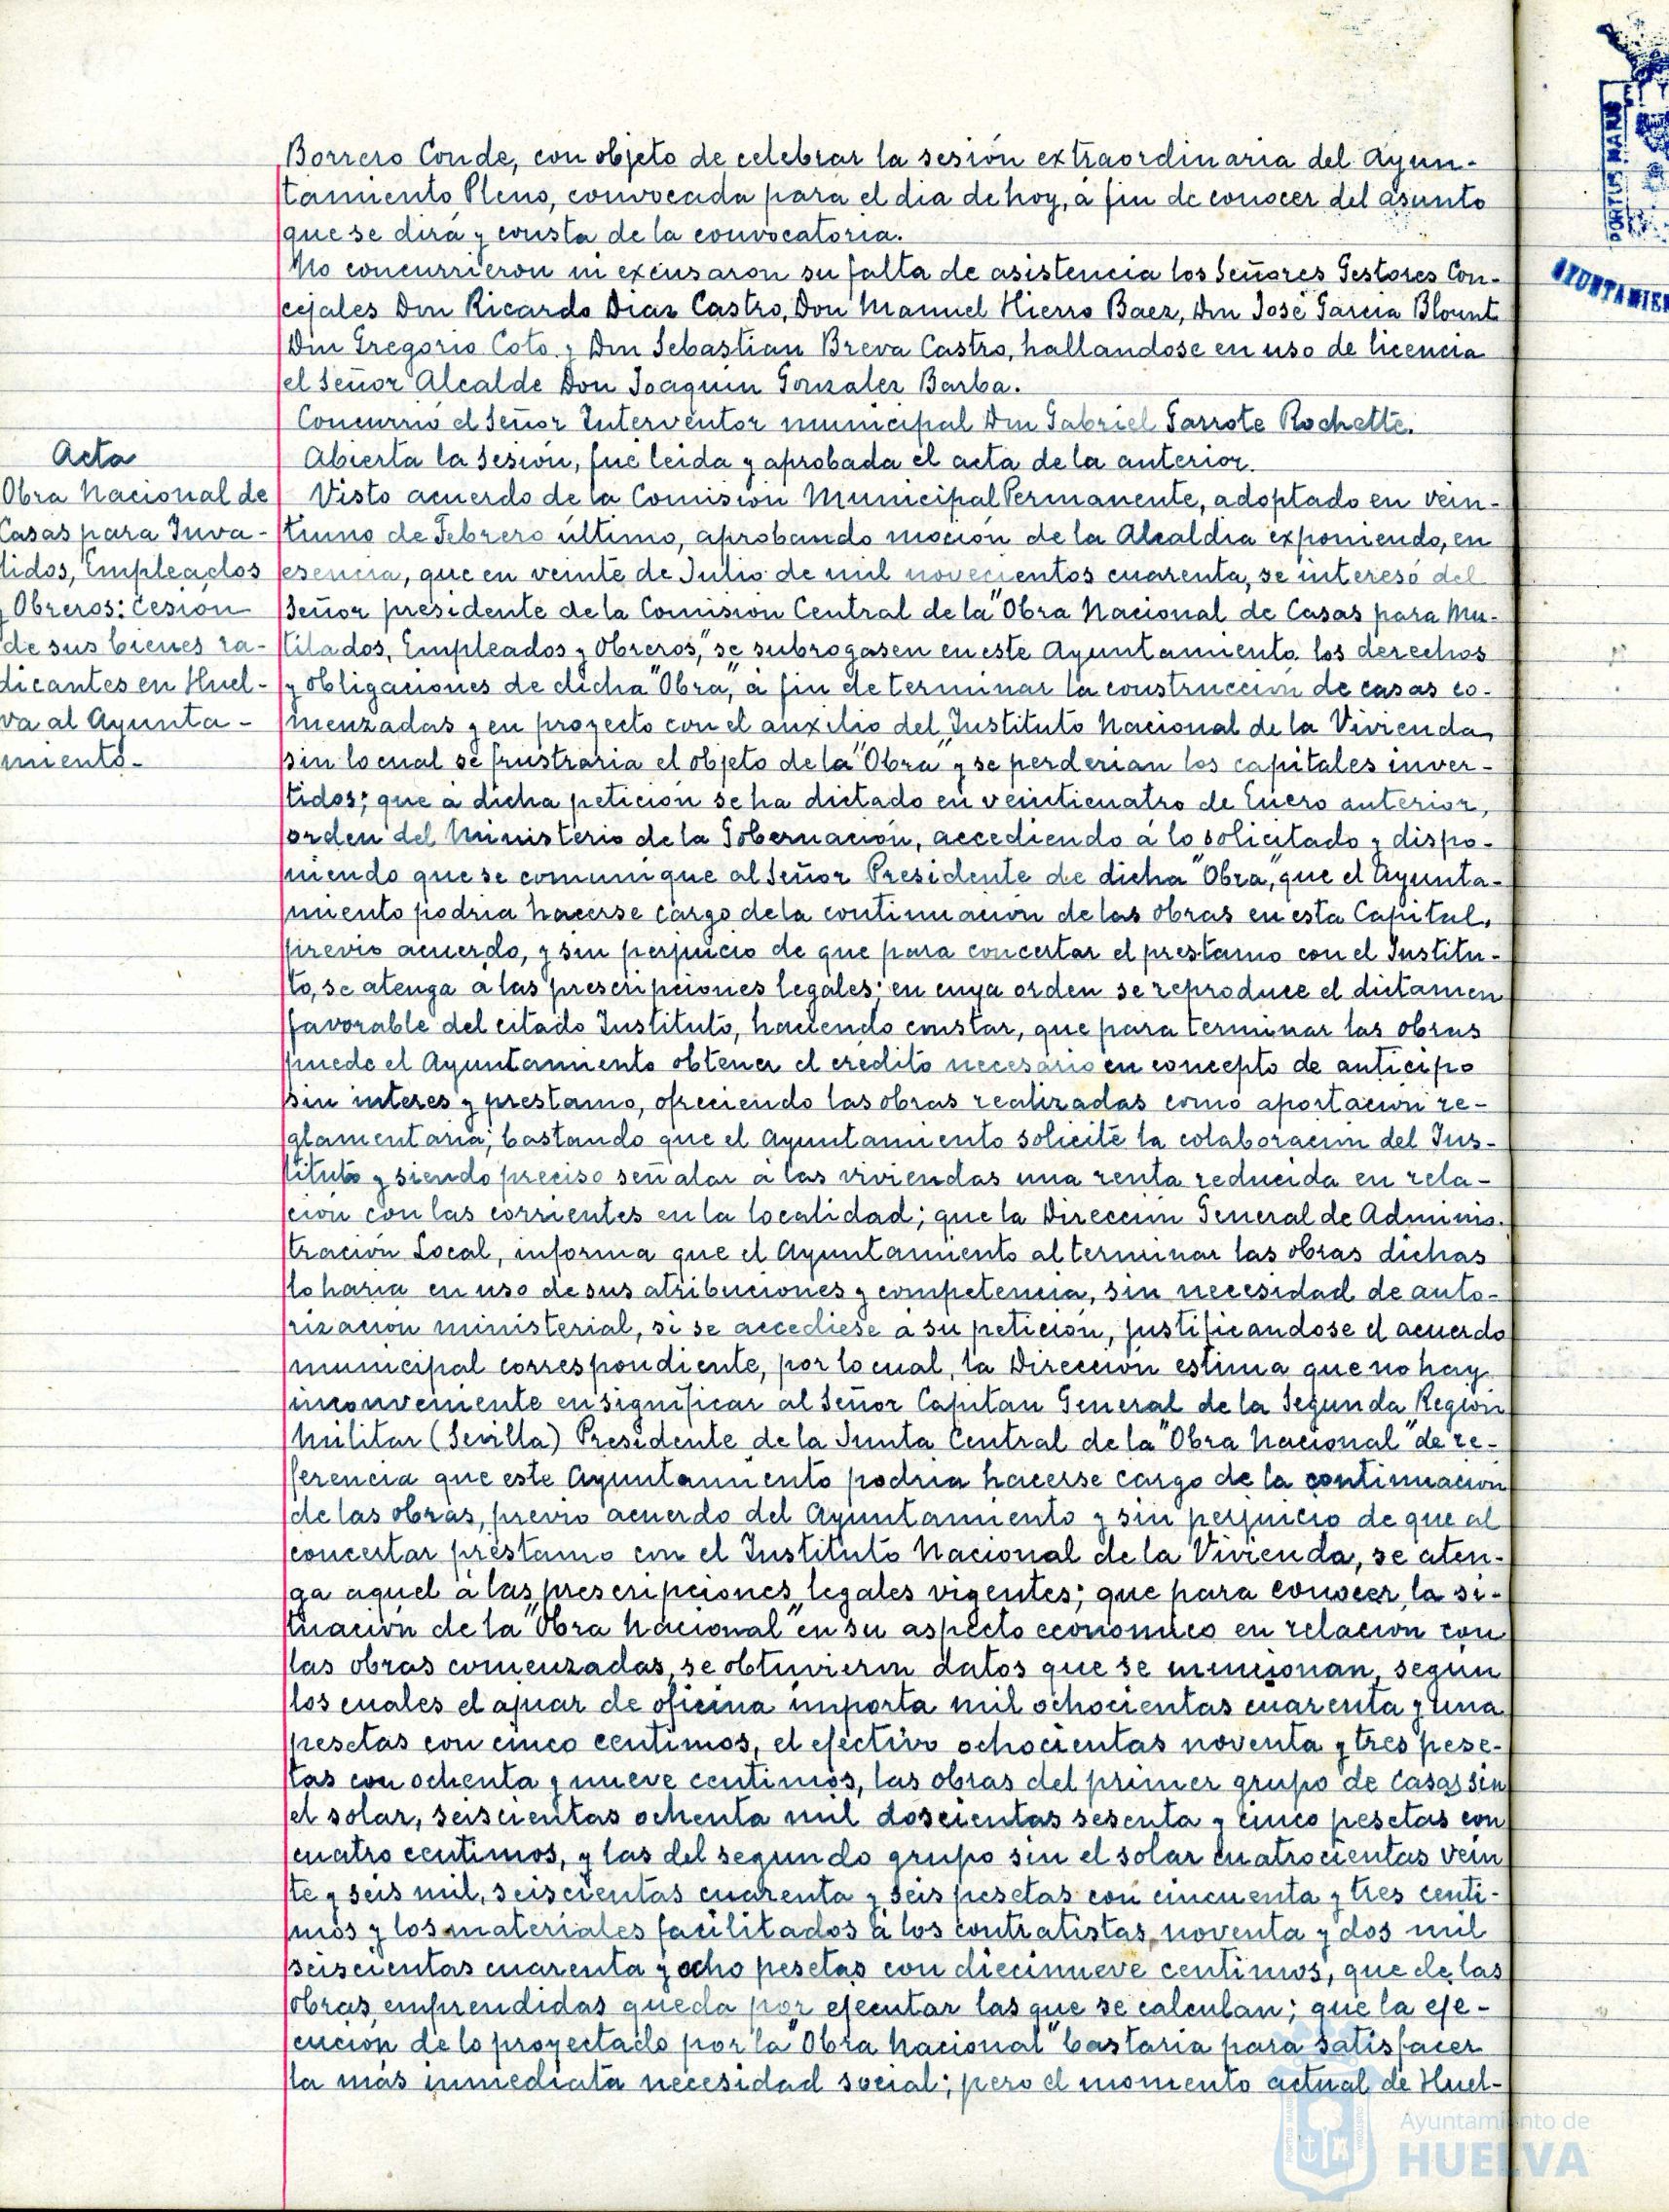 Borrero Conde, con objeto de celebrar la sesión extraordinaria del Ayun-
tamiento Pleno, convocada para el dia de hoy, á fin de conocer del asunto
que se dirá y consta de la convocatoria.
No concurrieron ni excusaron su falta de asistencia los Señores Gestores Con-
cejales Don Ricardo Diaz Castro, Don Manuel Hierro Baez, Don José Garcia Blount
Don Gregorio Coto y Don Sebastian Breva Castro, hallandose en uso de licencia
el Señor Alcalde Don Joaquin Gonzalez Barba.
Concurrió el Señor Interventor municipal Don Gabriel Garrote Rochette.
Acta
Abierta la Sesión, fué leida y aprobada el acta de la anterior.
Obra Nacional de
Casas para Inva-
lidos, Empleados
y Obreros: Cesión
de sus bienes ra-
dicantes en Huel-
va al Ayunta-
miento-
Visto acuerdo de la Comisión Municipal Permanente, adoptado en vein-
tiuno de Febrero último, aprobando moción de la Alcaldia exponiendo, en
esencia, que en veinte de Julio de mil novecientos cuarenta, se interesó del
Señor presidente de la Comision Central de la "Obra Nacional de Casas para Mu-
tilados, Empleados y Obreros," se subrogasen en este Ayuntamiento los derechos
y obligaciones de dicha "Obra," á fin de terminar la construcción de casas co-
menzadas y en proyecto con el auxilio del Instituto Nacional de la Vivienda,
sin lo cual se frustraria el objeto de la "Obra" y se perderian los capitales inver-
tidos; que á dicha petición se ha dictado en veinticuatro de Enero anterior,
orden del Ministerio de la Gobernación, accediendo á lo solicitado y dispo-
niendo que se comunique al Señor Presidente de dicha "Obra," que el Ayunta-
miento podria hacerse cargo de la continuación de las obras en esta Capital,
previo acuerdo, y sin perjuicio de que para concertar el prestamo con el Institu-
to, se atenga á las prescripciones legales; en cuya orden se reproduce el dictamen
favorable del citado Instituto, haciendo constar, que para terminar las obras
puede el Ayuntamiento obtener el crédito necesario en concepto de anticipo
sin interes y prestamo, ofreciendo las obras realizadas como aportacion re-
glamentaria; bastando que el Ayuntamiento solicite la colaboración del Ins-
tituto y siendo preciso señalar á las viviendas una renta reducida en rela-
ción con las corrientes en la localidad; que la Dirección General de Adminis-
tración Local, informa que el Ayuntamiento al terminar las obras dichas
lo haria en uso de sus atribuciones y competencia, sin necesidad de auto-
rización ministerial, si se accediese á su petición, justificandose el acuerdo
municipal correspondiente, por lo cual, la Dirección estima que no hay
inconveniente en significar al Señor Capitan General de la Segunda Región
Militar (Sevilla) Presidente de la Junta Central de la "Obra Nacional" de re-
ferencia que este Ayuntamiento podria hacerse cargo de la continuación
de las obras, previo acuerdo del Ayuntamiento y sin perjuicio de que al
concertar préstamo con el Instituto Nacional de la Vivienda, se aten-
ga aquel á las prescripciones legales vigentes; que para conocer la si-
tuación de la "Obra Nacional" en su aspecto economico en relacion con
las obras comenzadas, se obtuvieron datos que se mencionan, según
los cuales el ajuar de oficina importa mil ochocientas cuarenta y una
pesetas con cinco centimos, el efectivo ochocientas noventa y tres pese-
tas con ochenta y nueve centimos, las obras del primer grupo de casas sin
el solar, seiscientas ochenta mil doscientas sesenta y cinco pesetas con
cuatro centimos, y las del segundo grupo sin el solar cuatrocientas vein
te y seis mil, seiscientas cuarenta y seis pesetas con cincuenta y tres centi-
mos y los materiales facilitados á los contratistas noventa y dos mil
seiscientas cuarenta y ocho pesetas con diecinueve centimos, que de las
obras emprendidas queda por ejecutar las que se calculan; que la eje-
cución de lo proyectado por la "Obra Nacional" bastaria para satisfacer
la más inmediata necesidad social; pero el momento actual de Huel-
PORTUS MARIS
AYUNTAMIEN
Ayuntamiento de
HUELVA